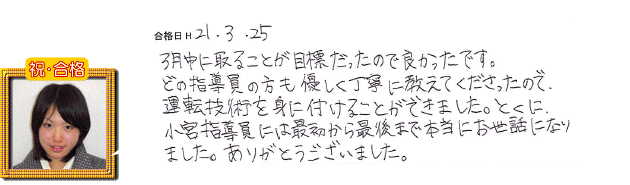 合格日 H 21.3.25
祝・合格
3月中に取ることが目標だったので良かったです。
どの指導員の方も優しく丁寧に教えてくださったので、
運転技術を身に付けることができました。とくに、
小宮指導員には最初から最後まで本当にお世話になり
ました。ありがとうございました。